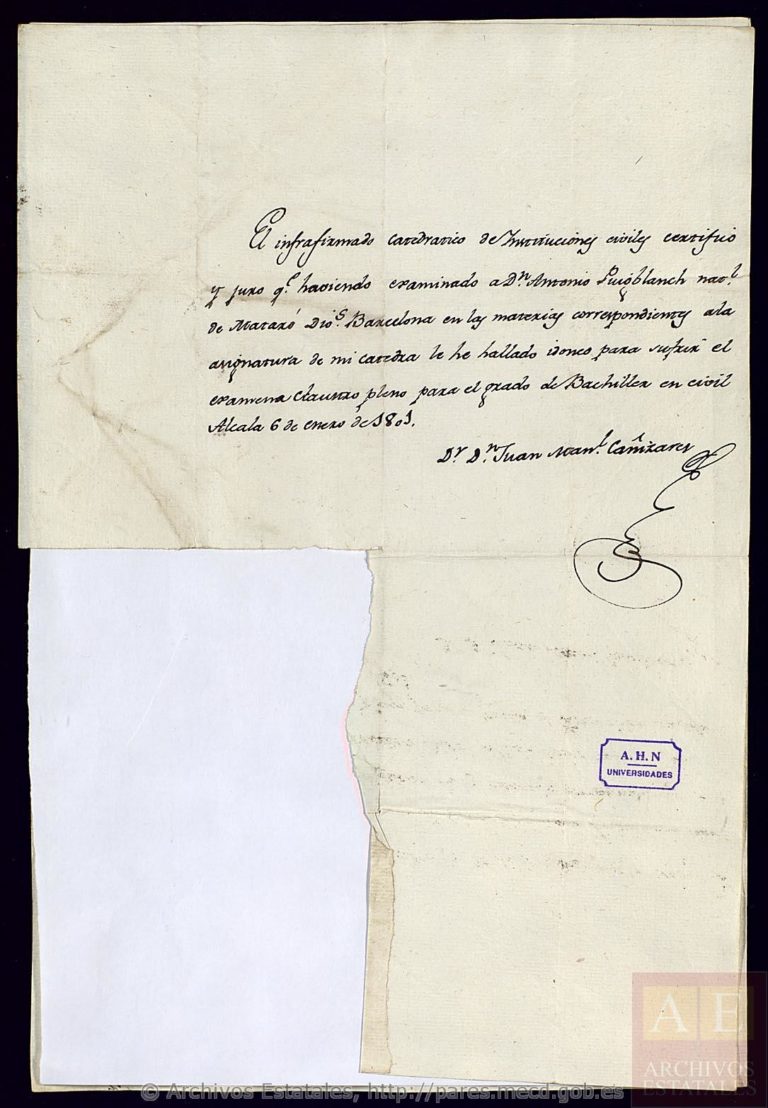 El infrafirmado catedratico de Instituciones civiles certifico
y juro q.e haviendo examinado a D.n Antonio Puigblanch nat.l
de Mataró Dio.s Barcelona en las materias correspondientes ala
asignatura de mi catedra le he hallado idoneo para sufrir el
examen a Claustro pleno para el grado de Bachiller en civil
Alcala 6 de enero de 1801.
D.r D.n Juan Man.l Cañizares
A. H. N
UNIVERSIDADES
A E
ARCHIVOS
ESTATALES
© Archivos Estatales, http://pares.mecd.gob.es